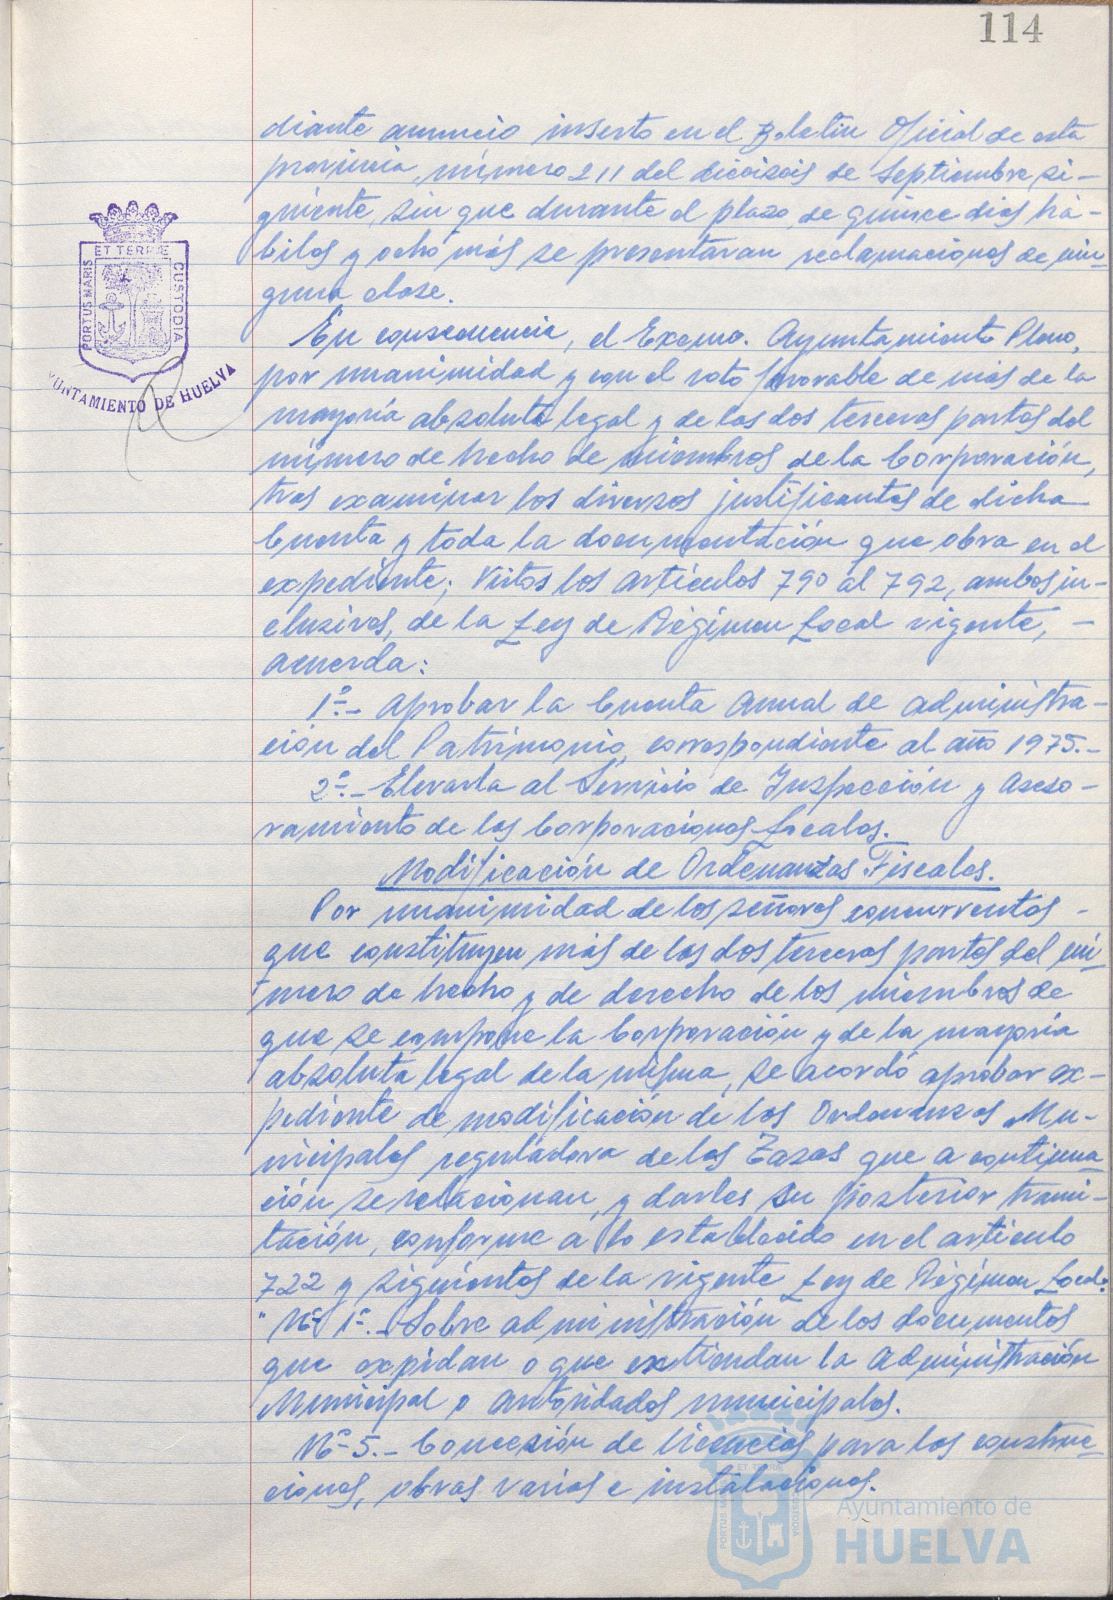 114
diante anuncio inserto en el Boletin Oficial de esta
provincia, número 211 del dieciseis de Septiembre si-
guiente, sin que durante el plazo, de quince dias há-
biles y ocho más se presentaran reclamaciones de nin-
guna clase.
En consecuencia, el Excmo. Ayuntamiento Pleno,
por unanimidad y con el voto favorable de más de la
mayoría absoluta legal y de las dos terceras partes del
número de hecho de miembros de la Corporación,
tras examinar los diversos justificantes de dicha
Cuenta y toda la documentación que obra en el
expediente; Vistos los artículos 790 al 792, ambos in-
clusives, de la Ley de Régimen Local vigente, -
acuerda:
1º.- Aprobar la Cuenta Anual de administra-
ción del Patrimonio, correspondiente al año 1975.-
2º.- Elevarla al Servicio de Inspección y Aseso-
ramiento de las Corporaciones Locales.
Modificación de Ordenanzas Fiscales.
Por unanimidad de los señores concurrentes -
que constituyen más de las dos terceras partes del nú-
mero de hecho y de derecho de los miembros de
que se compone la Corporación y de la mayoría
absoluta legal de la misma, se acordó aprobar ex-
pediente de modificación de las Ordenanzas Mu-
nicipales reguladora de las Tasas que a continua-
ción se relacionan, y darles su posterior trami-
tación, conforme a lo establecido en el artículo
722 y siguientes de la vigente Ley de Régimen Local:
"Nº 1º.- Sobre administración de los documentos
que expidan o que extiendan la Administración
Municipal o autoridades municipales.
Nº 5.- Concesión de licencias para las construc-
ciones, obras varias e instalaciones.
PORTUS MARIS ET TERRÆ CUSTODIA
AYUNTAMIENTO DE HUELVA
PORTUS MARIS ET TERRÆ CUSTODIA
Ayuntamiento de
HUELVA